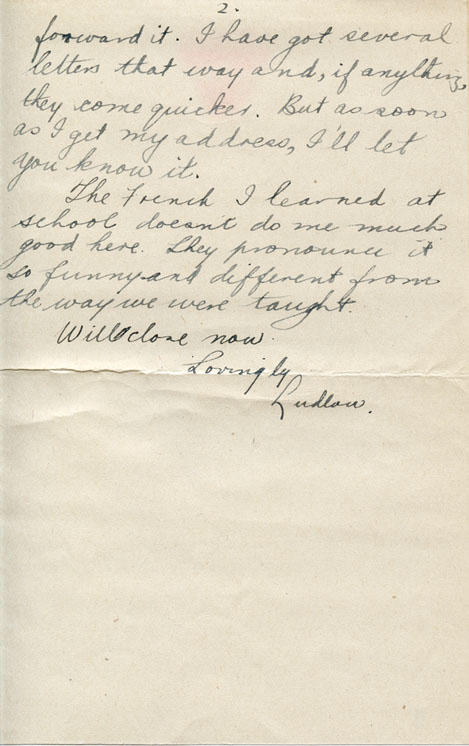 2.
forward it. I have got several
letters that way and, if anything,
they come quicker. But as soon
as I get my address, I'll let
you know it.
The French I learned at
school doesn't do me much
good here. They pronounce it
so funny and different from
the way we were taught.
Will close now.
Lovingly
Ludlow.